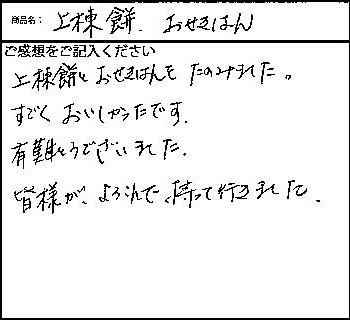 商品名: 上棟餅. おせきはん
ご感想をご記入ください
上棟餅とおせきはんを たのみました。
すごく おいしかったです.
有難とうございました.
皆様が、よろこんで、持って行きました.